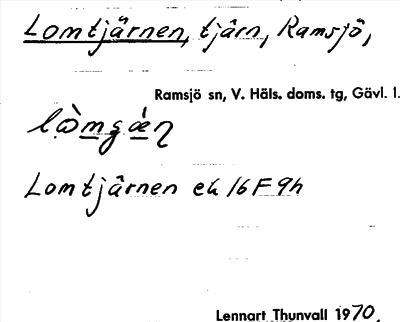 Lomtjärnen, tjärn, Ramsjö,
Ramsjö sn, V. Häls. doms. tg, Gävl. l.
Lomtjärnen ek 16F9h
Lennart Thunvall 1970.